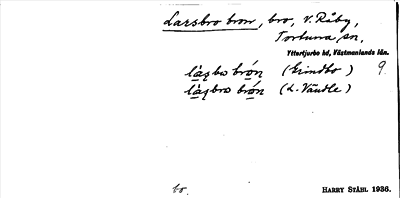 Larsbro bron, bro, V. Råby,
Tortuna sn,
Yttertjurbo hd, Västmanlands län.
làʂbω brón (Grindbo) 9
làʂbrω brón (L. Vändle)
bo. HARRY STÅHL 1936.